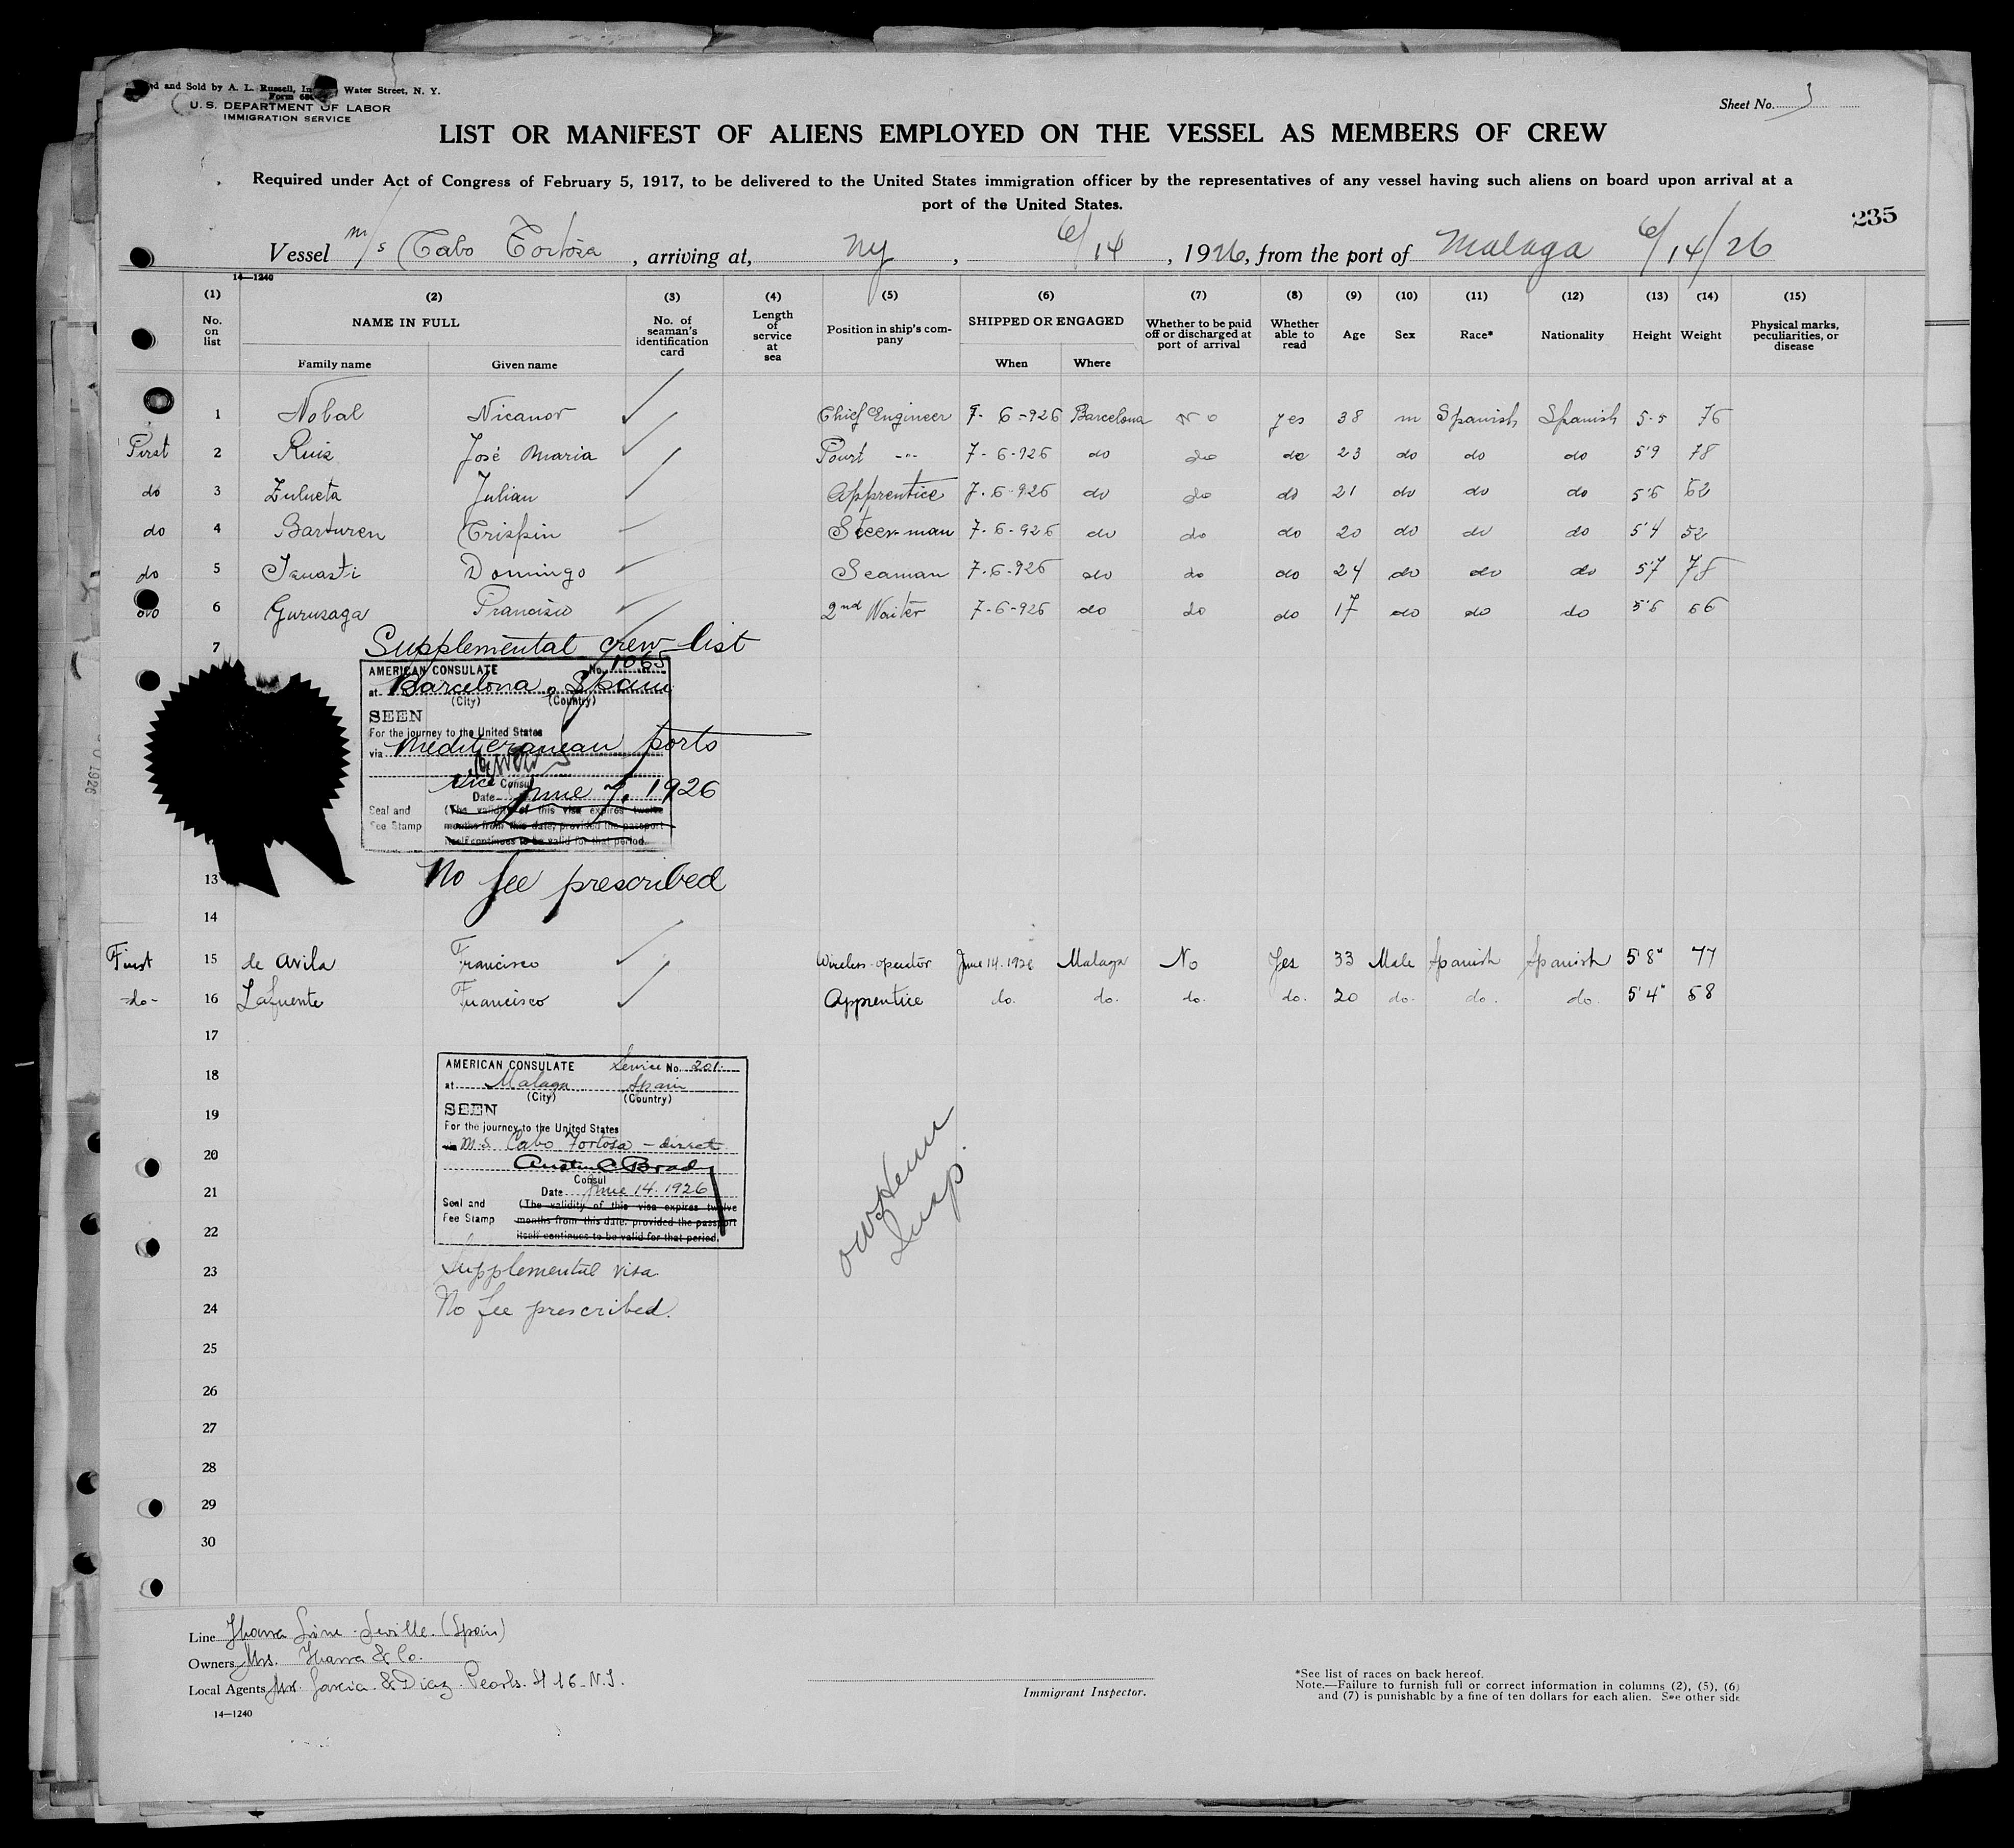 ed and Sold by A. L. Russell, In Water Street, N. Y.
Form 680
U. S. DEPARTMENT OF LABOR
IMMIGRATION SERVICE
Sheet No.
LIST OR MANIFEST OF ALIENS EMPLOYED ON THE VESSEL AS MEMBERS OF CREW
Required under Act of Congress of February 5, 1917, to be delivered to the United States immigration officer by the representatives of any vessel having such aliens on board upon arrival at a
port of the United States.
235
Vessel m/s Cabo Tortosa, arriving at, Ny, 6/14, 1926, from the port of Malaga 6/14/26
14—1240
(1) (2) (3) (4) (5) (6) (7) (8) (9) (10) (11) (12) (13) (14) (15)
No. on list NAME IN FULL No. of seaman's identification card Length of service at sea Position in ship's company SHIPPED OR ENGAGED Whether to be paid off or discharged at port of arrival Whether able to read Age Sex Race* Nationality Height Weight Physical marks, peculiarities, or disease
Family name Given name When Where
1 Nobal Nicanor Chief Engineer 7-6-926 Barcelona No yes 38 m Spanish Spanish 5-5 76
First 2 Ruiz José Maria -"- 7-6-926 do do do 23 do do do 5'9 78
do 3 Zulueta Julian Apprentice 7-6-926 do do do 21 do do do 5'6 62
do 4 Barturen Crispin Steer-man 7-6-926 do do do 20 do do do 5'4 52
do 5 Domingo Seaman 7-6-926 do do do 24 do do do 5'7 78
do 6 Gurusaga Francisco 2nd Waiter 7-6-926 do do do 17 do do do 5'6 66
7 Supplemental crew list
AMERICAN CONSULATE No. 1065
at Barcelona, Spain
(City) (Country)
SEEN
For the journey to the United States
via Mediterranean ports
Vice Consul
Date June 7, 1926
Seal and (The validity of this visa expires twelve
Fee Stamp months from this date, provided the passport
itself continues to be valid for that period.
13 No fee prescribed
14
First 15 de Avila Francisco Wireless operator June 14. 1926 Malaga No Yes 33 Male Spanish Spanish 5'8" 77
-do- 16 Lafuente Francisco Apprentice do. do. do. do. 20 do. do. do. 5'4" 58
17
18
AMERICAN CONSULATE Service No. 201.
at Malaga Spain
(City) (Country)
19
SEEN
For the journey to the United States
M.S. Cabo Tortosa - direct
20
Austin C Brady
Consul
21
Date June 14. 1926
Seal and (The validity of this visa expires twelve
Fee Stamp months from this date, provided the passport
22
itself continues to be valid for that period.
23 Supplemental visa
24 No fee prescribed.
Insp.
25
26
27
28
29
30
Line Ybarra Line - Seville. (Spain)
Owners Mrs. Ybarra & Co.
Local Agents Mr. Garcia & Diaz. Pearls. St 16-N.J.
14—1240
Immigrant Inspector.
*See list of races on back hereof.
Note.—Failure to furnish full or correct information in columns (2), (5), (6)
and (7) is punishable by a fine of ten dollars for each alien. See other side